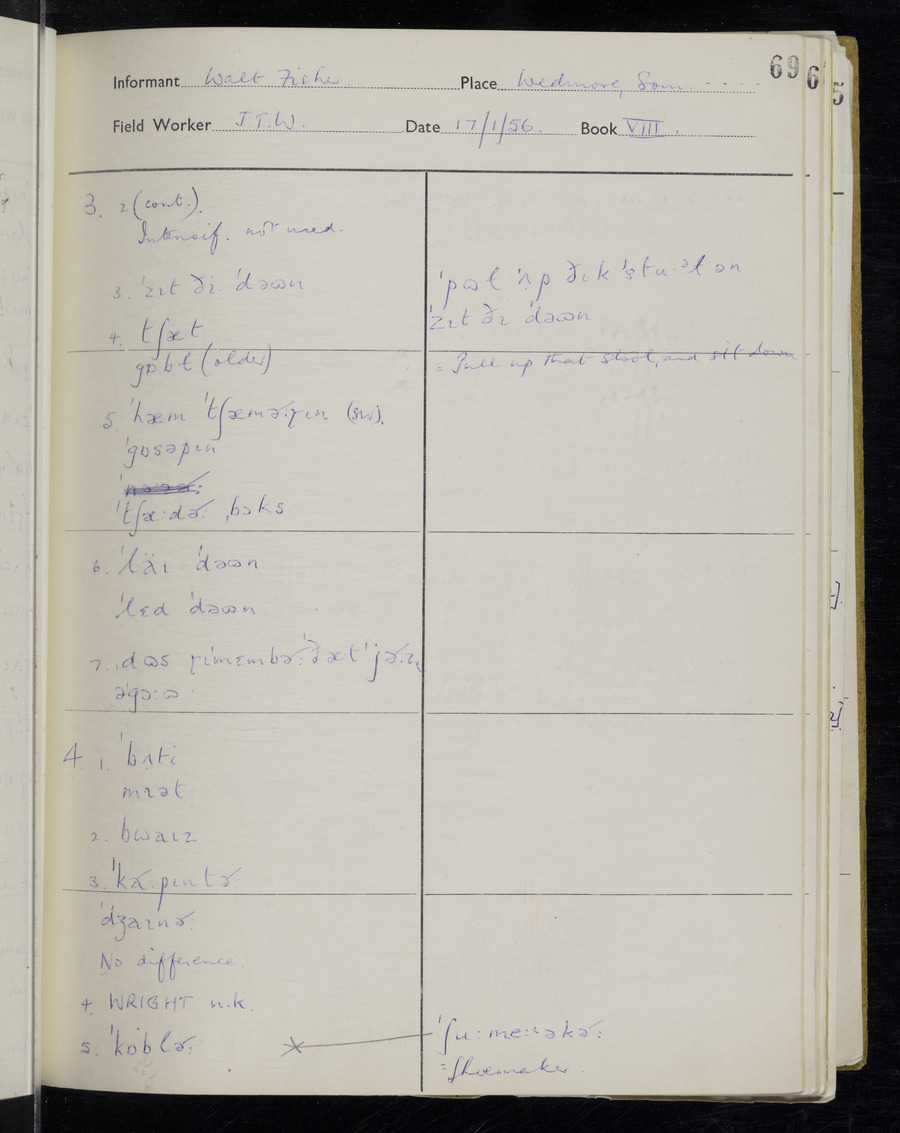 69
6
5
Informant Walt Fisher Place Wedmore, Som.
Field Worker J.T.W. Date 17/1/56. Book VIII.
3. 2 (cont.).
Intensif. not used.
3. ˈzɪt ðɪ ˈdəɷn
4. tʃæt
gɒbɫ (older)
5. ˈhæm ˈtʃæməɽɪn (sw).
ˈgɒsəpɪn
ˈtʃæ:dɚ: ˌbɔks
6. ˈläɪ ˈdəɷn
ˈlɛd ˈdəɷn
7. dɷs ɽɪˈmɛmbɚ: ˈðæt ˈjɚ:z
əˈgɔ:ɷ
4. 1. ˈbʌti
mɪət
2. bwaɪz
3. ˈkɚ:pɪntɚ
ˈdʒaɪnɚ:
No difference.
4. WRIGHT n.k.
5. ˈkɒblɚ:
ˈpɷɫ ˈʌp ðɪk ˈstu:əl ən
ˈzɪt ðɪ ˈdəɷn
= Pull up that stool, and sit down
ˈʃu:me:ɪəkɚ:
= Shoemaker